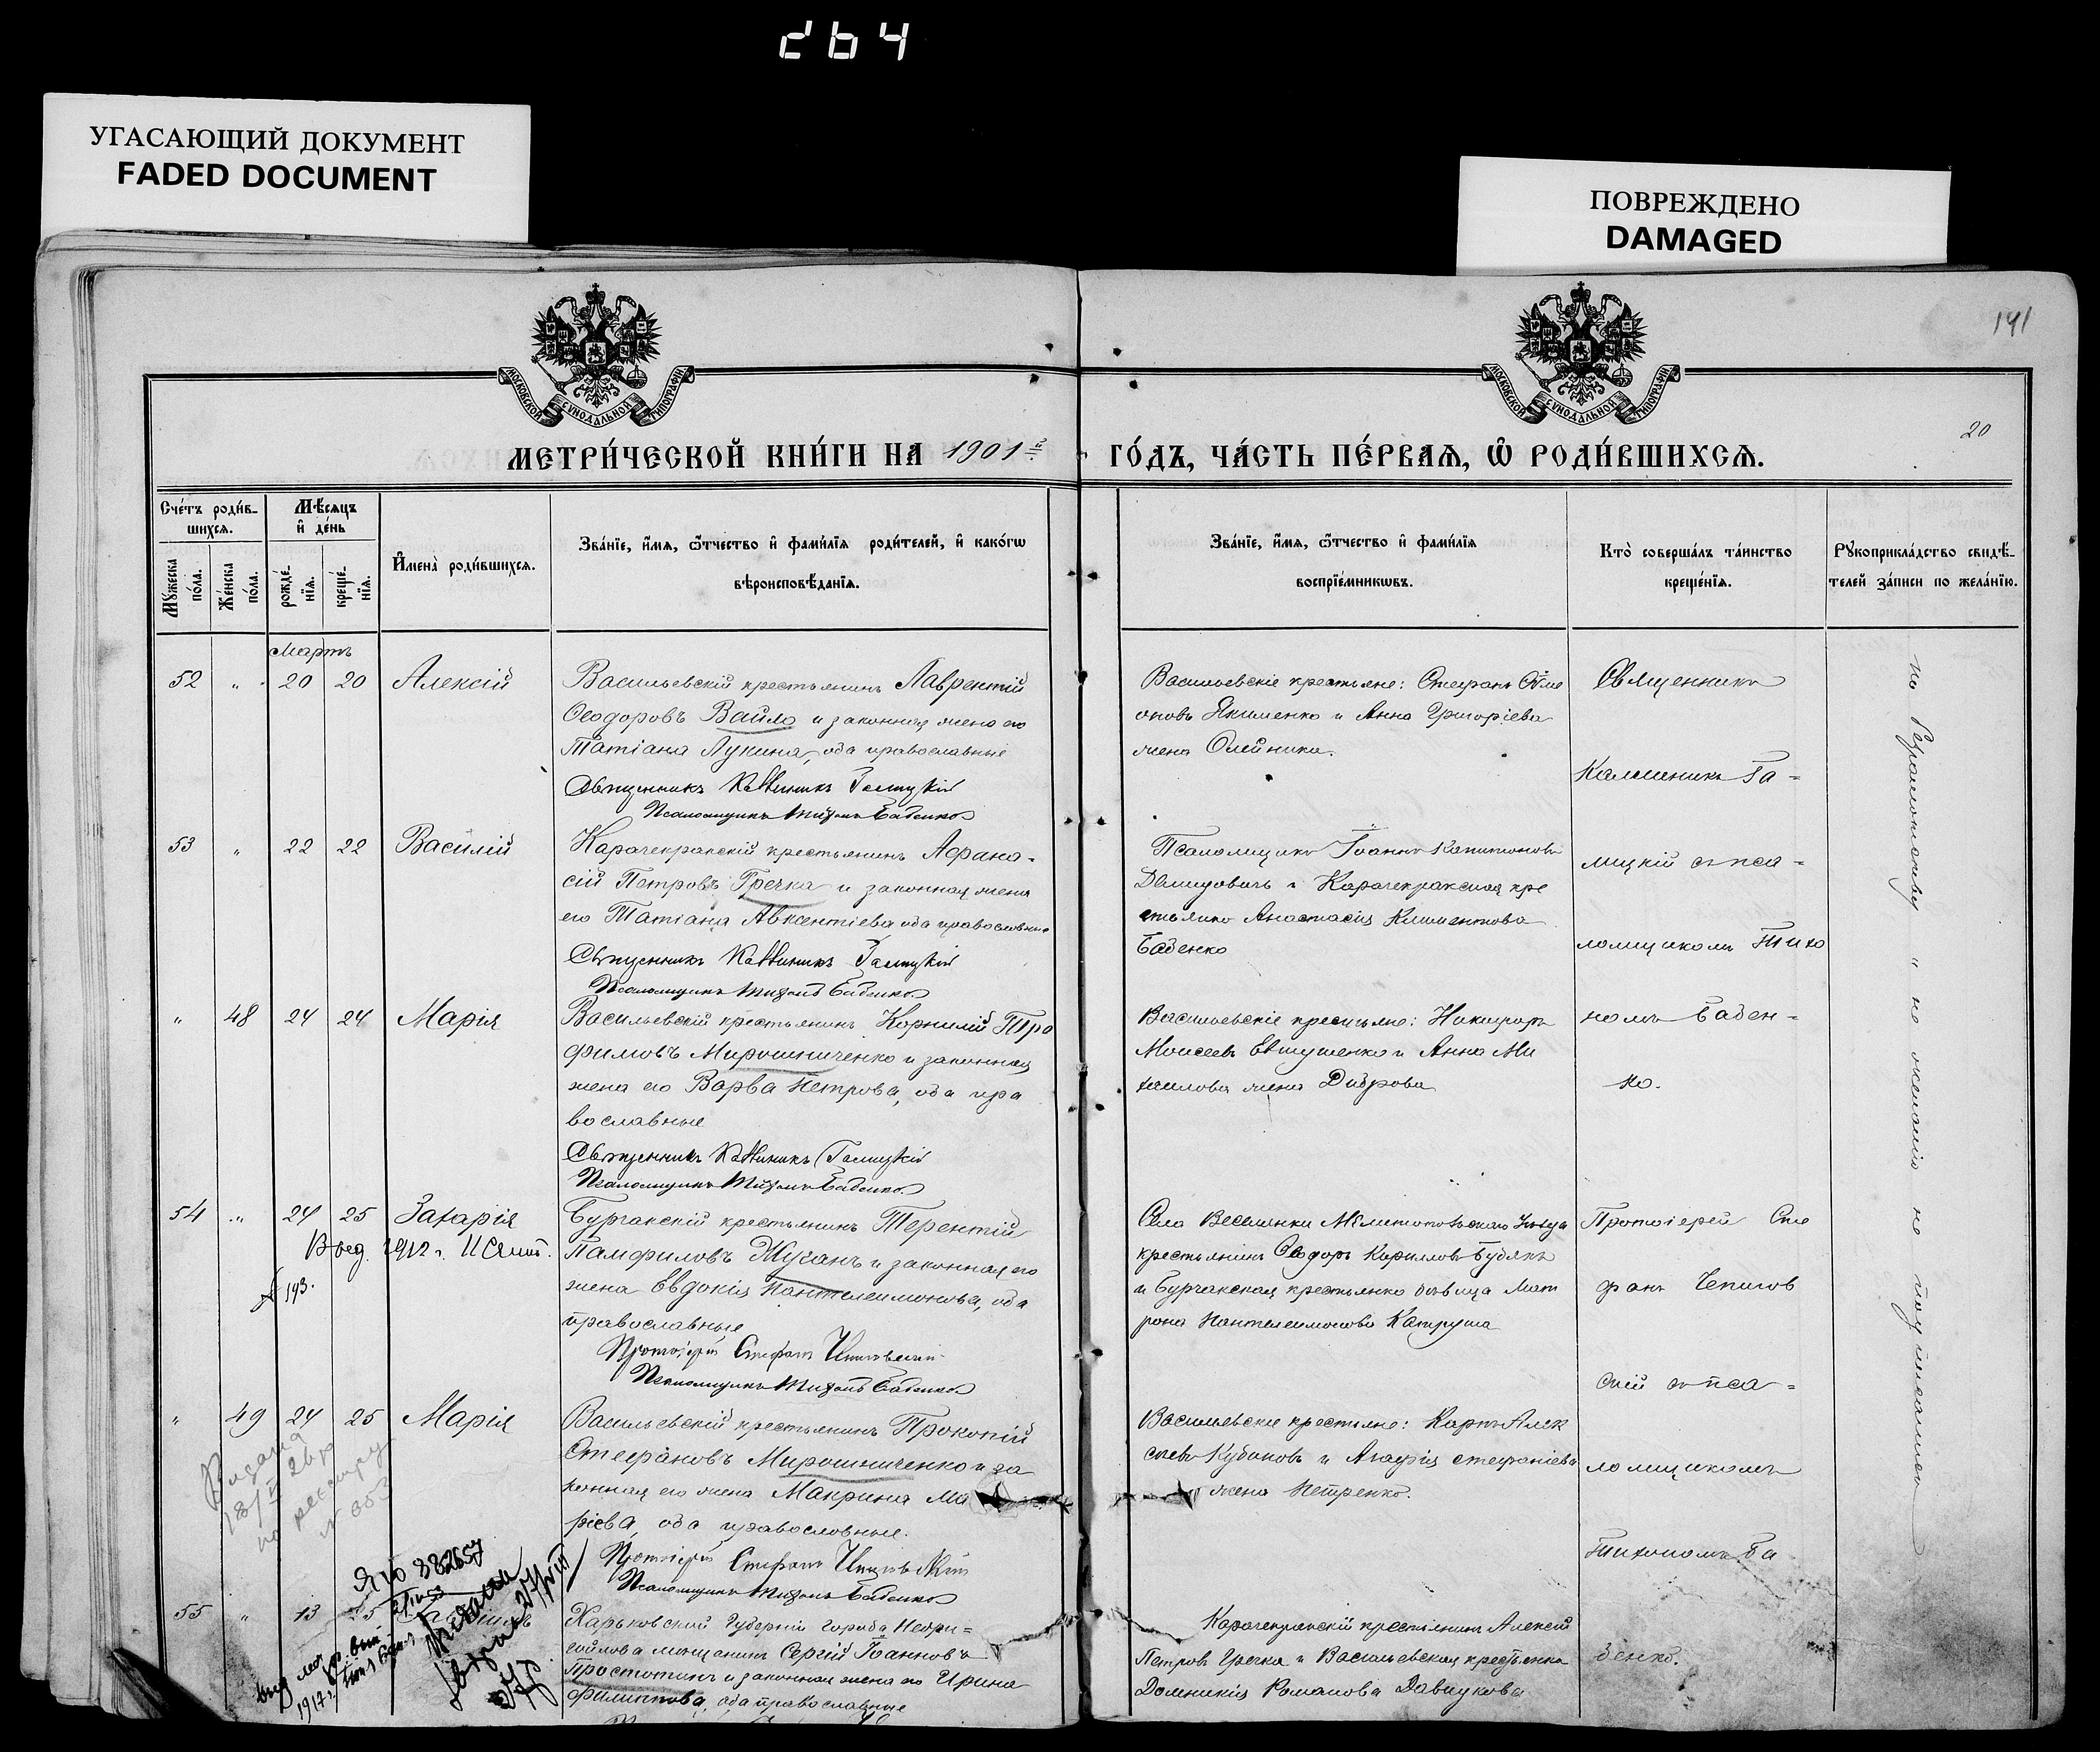 264
УГАСАЮЩИЙ ДОКУМЕНТ
FADED DOCUMENT
ПОВРЕЖДЕНО
DAMAGED
141
МОСКОВСКОЙ СѴНОДАЛЬНОЙ ТИПОГРАФІИ
МОСКОВСКОЙ СѴНОДАЛЬНОЙ ТИПОГРАФІИ
20
МЕТРИ́ЧЕСКОЙ КНИ́ГИ НА 1901й
ГО́ДЪ, ЧА́СТЬ ПЕ́РВАЯ, Ѡ РОДИ́ВШИХСЯ.
Сче́тъ роди́в-
шихся.
Мѣ́сяцъ
и҆ де́нь
Мꙋ́жеска
по́ла.
Же́нска
по́ла.
рожде́-
нїя.
креще́-
нїя.
И҆мена̀ роди́вшихся.
Зва́нїе, и҆́мя, ѻ҆́тчество и҆ фами́лїя роди́телей, и҆ како́гѡ
вѣроисповѣ́данїя.
Зва́нїе, и҆́мя, ѻ҆́тчество и҆ фами́лїя
воспрїе́мникѡвъ.
Кто̀ соверша́лъ та́инство
креще́нїя.
Рꙋкоприкла́дство свидѣ́-
телей за́писи по жела́нїю.
Мартъ
52 " 20 20 Алексій
Васильевскій крестьянинъ Лаврентій
Ѳеодоровъ Вайло и законная жена его
Татіана Лукина, оба православные
Священникъ Каллиникъ Галицкій
Псаломщикъ Тихонъ Баденко
Васильевскіе крестьяне: Стефанъ Симе
оновъ Якименко и Анна Григоріева
жена Олейника.
Священникъ
Каллиникъ Га-
53 " 22 22 Василій
Карачекракскій крестьянинъ Афана-
сій Петровъ Гречка и законная жена
его Татіана Авксентіева оба православные
Священникъ Каллиникъ Галицкій
Псаломщикъ Тихонъ Баденко
Псаломщикъ Іоаннъ Капитоновъ
Демидовичъ и Карачекракская кре
стьянка Анастасія Климентова
Баденко
лицкій съ пса-
ломщикомъ Тихо
" 48 24 24 Марія
Васильевскій крестьянинъ Корнилій Тро
фимовъ Мирошниченко и законная
жена его Варва Петрова, оба пра
вославные
Священникъ Каллиникъ Галицкій
Псаломщикъ Тихонъ Баденко
Васильевскіе крестьяне: Никифоръ
Моисеевъ Евтушенко и Анна Ми
хаилова жена Диброва
номъ Баден-
ко.
54 " 24 25 Захарія
1912 г.
№ 193.
Бурчакскій крестьянинъ Терентій
Памфиловъ Жуганъ и законная его
жена Евдокія Пантелеимонова, оба
православные
Протоіерей Стефанъ
Псаломщикъ Тихонъ Баденко
Села Веселинки Мелитопольскаго уезда
крестьянинъ Ѳеодоръ Кирилловъ Будякъ
и Бурчакская крестьянка девица Мат
рона Пантелеимонова Катруша
Протоіерей Сте
фанъ Чепигов
скій съ пса-
" 49 24 25 Марія
Васильевскій крестьянинъ Прокопій
Стефановъ Мирошниченко и за
конная его жена Макрина Ма
ріева, оба православные.
Протоіерей Стефанъ
Псаломщикъ Тихонъ Баденко
Васильевскіе крестьяне: Карпъ Алек
сіевъ Кубановъ и Агафія Стефаніева
жена Петренко.
ломщикомъ
Тихономъ Ба
Выдана
по реестру
№ 853
882657
55 " 13
Харьковской губерніи города
мѣщанинъ Сергій Іоанновъ
Простотинъ и законная жена его Ирина
Филиппова, оба православные
Карачекракскій крестьянинъ Алексій
Петровъ Гречка и Васильевская крестьянка
Домникія Романова Давидкова
денко.
1917 г.
но желанію не